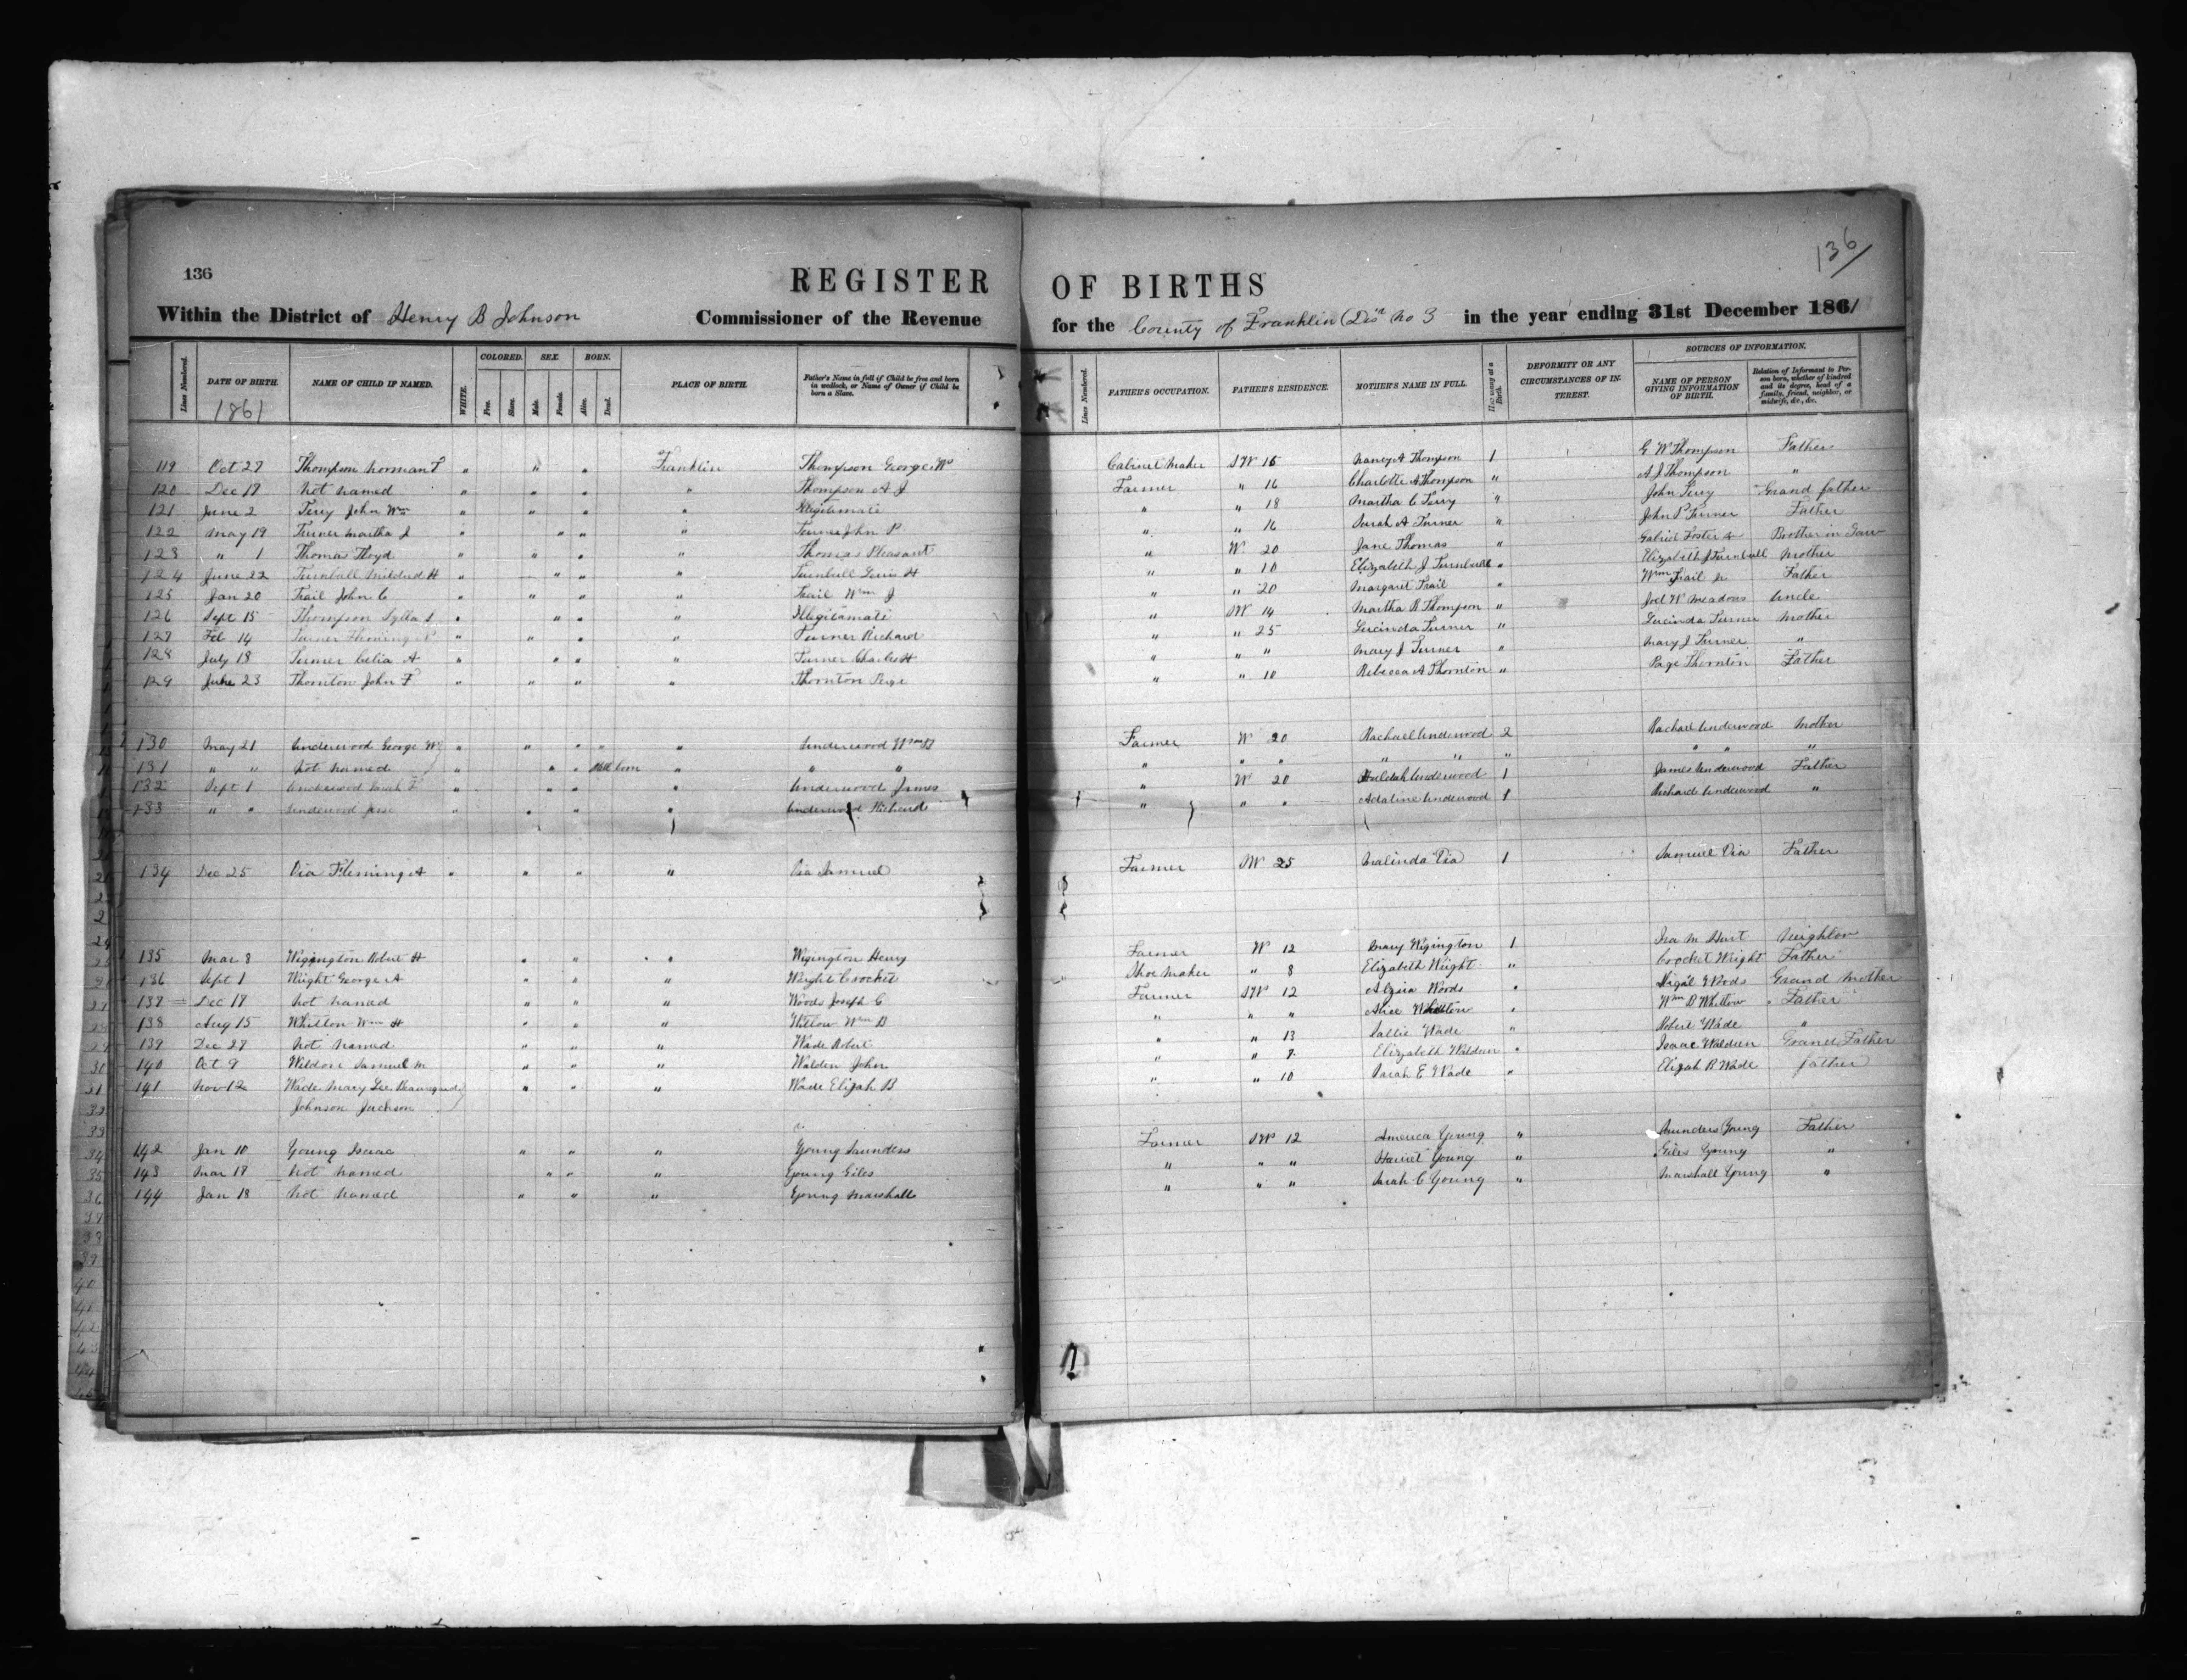 136
136/
REGISTER OF BIRTHS
Within the District of Henry B Johnson Commissioner of the Revenue for the County of Franklin Dis't No 3 in the year ending 31st December 1861
Lines Numbered. DATE OF BIRTH. NAME OF CHILD IF NAMED. WHITE. COLORED. Free. Slave. SEX. Male. Female. BORN. Alive. Dead. PLACE OF BIRTH. Father's Name in full if Child be free and born in wedlock, or Name of Owner if Child be born a Slave. Lines Numbered. FATHER'S OCCUPATION. FATHER'S RESIDENCE. MOTHER'S NAME IN FULL. How many at a Birth. DEFORMITY OR ANY CIRCUMSTANCES OF INTEREST. SOURCES OF INFORMATION. NAME OF PERSON GIVING INFORMATION OF BIRTH. Relation of Informant to Person born, whether of kindred and its degree, head of a family, friend, neighbor, or midwife, &c., &c.
1861
119 Oct 27 Thompson Norman T " " " Franklin Thompson George Wm Cabinet Maker SW 16 Nancy A Thompson 1 G W Thompson Father
120 Dec 18 Not named " " " " Thompson A J Farmer " 16 Charlotte A Thompson " A J Thompson "
121 June 2 Terry John Wm " " " " Illegitimate " " 18 Martha C Terry " John Terry Grand father
122 May 19 Turner Martha J " " " " Turner John P " " 16 Sarah A Turner " John P Turner Father
123 " 1 Thomas Floyd " " " " Thomas Pleasant " W 20 Jane Thomas " Gabriel Foster Brother in Law
124 June 22 Turnbull Mildred H " " " " Turnbull Lewis H " " 10 Elizabeth J Turnbull " Elizabeth J Turnbull Mother
125 Jan 20 Trail John C " " " " Trail Wm J " " 20 Margaret Trail " Wm Trail Father
126 Sept 15 Thompson " " " " Illegitamate " SW 14 Martha R Thompson " Joel W Meadows Uncle
127 Feb 14 Turner " " " " Turner Richard " " 25 Lucinda Turner " Lucinda Turner Mother
128 July 18 Turner Celia A " " " " Turner Charles H " " " Mary J Turner " Mary J Turner "
129 June 23 Thornton John F " " " " Thornton Page " " 10 Rebecca A Thornton " Page Thornton Father
130 May 21 Underwood George W " " " " " Underwood Wm B Farmer W 20 Rachael Underwood 2 Rachael Underwood Mother
131 " " Not named " " " Still born " " " " " " " " " " " "
132 Sept 1 Underwood Sarah F " " " " Underwood James " W 20 Huldah Underwood 1 James Underwood Father
133 " " Underwood Jesse " " " " Underwood Richard " " " Adaline Underwood 1 Richard Underwood "
134 Dec 25 Via Fleming A " " " " Via Samuel Farmer SW 25 Malinda Via 1 Samuel Via Father
135 Mar 8 Wigington Robert H " " " Wigington Henry Farmer W 12 Mary Wigington 1 Ira M Hurt Neighbor
136 Sept 1 Wright George A " " " Wright Crocket Shoe Maker " 8 Elizabeth Wright " Crocket Wright Father
137 Dec 18 Not named " " " Woods Joseph C Farmer SW 12 Woods " Woods Grand Mother
138 Aug 15 Whitlow Wm H " " " Witlow Wm B " " " Alice Whitlow " Wm B Whitlow Father
139 Dec 27 Not named " " " Wade Robert " " 13 Sallie Wade " Robert Wade "
140 Oct 9 Weldon Samuel M " " " Walden John " " 7 Elizabeth Walden " Isaac Walden Grand Father
141 Nov 12 Wade Mary Lee Beauregard " " " Wade Elijah B " " 10 Sarah E Wade " Elijah B Wade father
Johnson Jackson
142 Jan 10 Young Isaac " " " Young Saunders Farmer SW 12 America Young " Saunders Young Father
143 Mar 18 Not named " " " Young Giles " " " Harriet Young " Giles Young "
144 Jan 18 Not named " " " Young Marshall " " " Sarah C Young " Marshall Young "